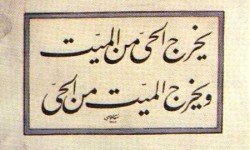 یخرج الحیّ من المیت
و یخرج المیت من الحیّ